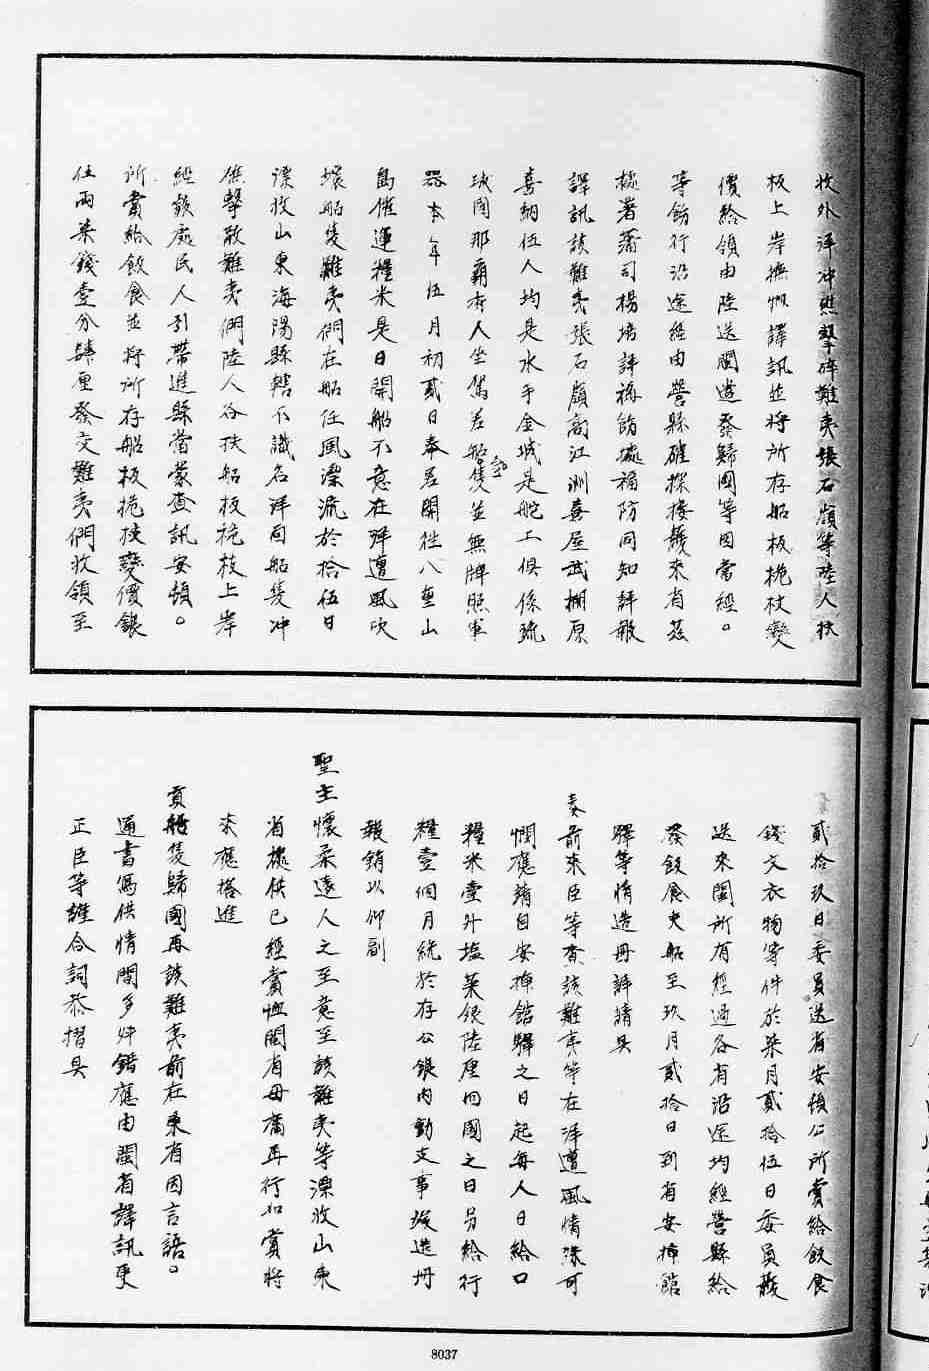 收外洋冲照擊碎難夷張石嶺等陸人扶
板上岸撫恤譯訊並將所存船板桅杖變
價給領由陸送閩遣發歸國等因當經。
等飭行沿途經由營縣確探接護來省茲
據署藩司楊培詳稱飭據福防同知詳報
譯訊該難夷張石嶺高江洲喜屋武棚原
喜納伍人均是水手金城是舵工俱係琉
球國那霸府人坐駕差船隻並無牌照軍
器本年伍月初貳日奉差開往八重山
島催運糧米是日開船不意在洋遭風吹
壞船隻難夷們在船任風漂流於拾伍日
漂收山東海陽縣轄不識名洋面船隻冲
礁擊散難夷們陸人各扶船板桅枝上岸
經該處民人引帶進縣當蒙查訊安頓。
所賞給飲食並將所存船板桅杖變價銀
伍兩柒錢壹分肆厘發交難夷們收領至
貳拾玖日委員送省安頓公所賞給飲食
錢文衣物等件於柒月貳拾伍日委員護
送來閩所有經過各省沿途均經營縣給
發飯食夫船至玖月貳拾日到省安插館
驛等情造冊詳請具
奏前來臣等查該難夷等在洋遭風情殊可
憫應請自安插館驛之日起每人日給口
糧米壹升塩菜銀陸厘回國之日另給行
糧壹個月統於存公銀內動支事竣造冊
報銷以仰副
聖主懷柔遠人之至意至該難夷等漂收山東
省據供已經賞恤閩省毋庸再行加賞將
來應搭進
貢船隻歸國再該難夷前在東省因言語。
通書寫供情間多舛錯應由閩省譯訊更
正臣等謹合詞恭摺具
8037